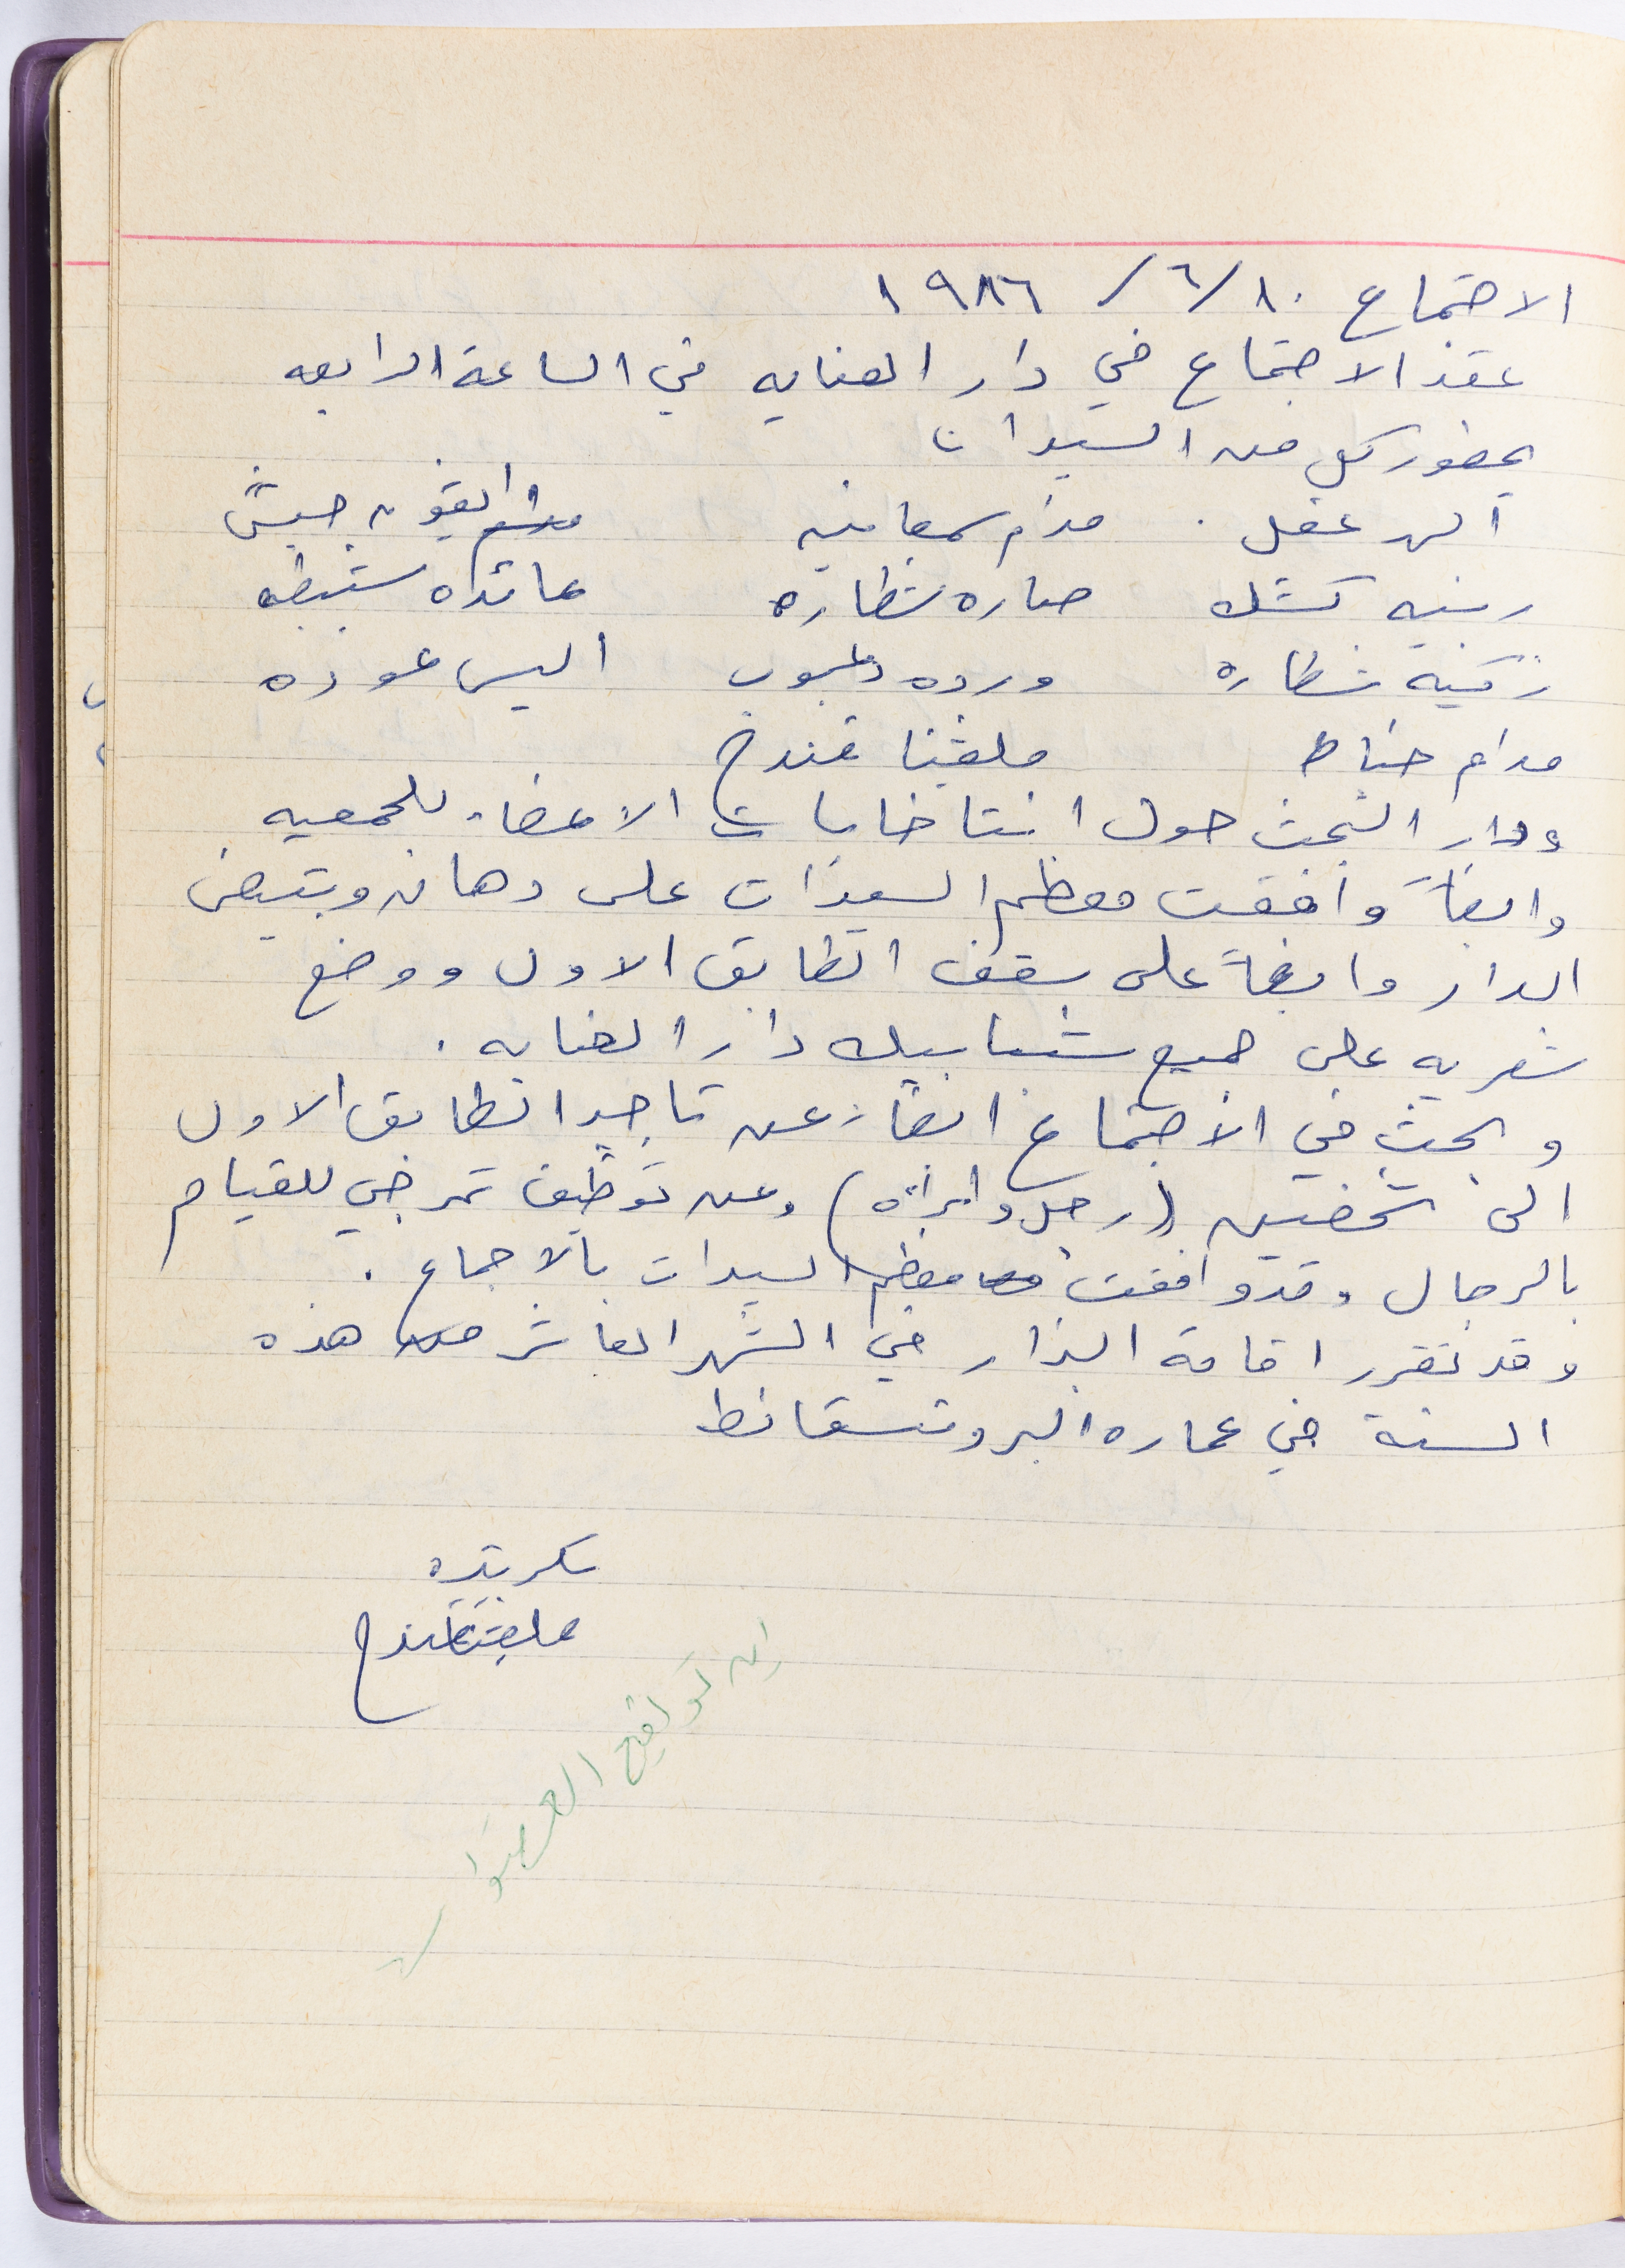 الاجتماع ١٠/٦/١٩٨٦
عقد الاجتماع في دار العنايه في الساعة الرابعه
بحضور كل من السيدات
الن عقل . مدام سمعانيه القونه حبش
رينيه كتتله صاره شطاره عائده ستبطه
زكية شطاره ورده دعبوب اليس عوده
مدام خياط ملفينا قندح
ودار البحث حول انتاخابات الاعضاء للجمعيه
وايضاً وافقت معظم السيدات على دهان وتبيض
الدار وايضاً على سقف الطابق الاول ووضع
شعريه على جميع شبابيك دار العنايه .
وبحث في الاجتماع ايضاً عن تاجير الطابق الاول
الى شخصين (رجل وامرأه) وعن توظيف تمرجي للقيام
بالرجال وقد وافقت معظم السيدات بالاجماع .
وقد تقرر اقامة البزار في الشهر العاشر من هذه
السنة في عماره البروتستانط
سكرتيره
ملفينا قندح
اين تواقيع العضوات